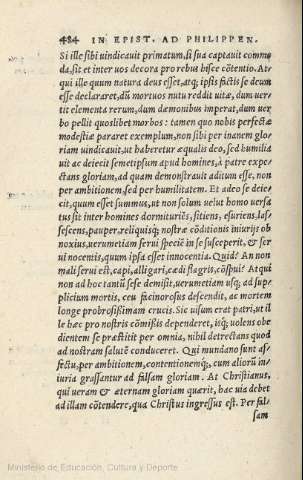 484 IN EPIST. AD PHILIPPEN.
Si ille sibi uindicauit primatum, si sua captauit commo
da, sit et inter uos decora pro rebus hisce cōtentio. At-
qui ille quum natura deus esset, atq; ipsis factis se deum
esse declararet, dū mortuos nutu reddit uitæ, dum uer-
tit elementa rerum, dum dæmonibus imperat, dum uer
bo pellit quoslibet morbos: tamen quo nobis perfectæ
modestiæ pararet exemplum, non sibi per inanem glo-
riam uindicauit, ut haberetur æqualis deo, sed humilia
uit ac deiecit semetipsum apud homines, à patre expe-
ctans gloriam, ad quam demonstrauit aditum esse, non
per ambitionem, sed per humilitatem. Et adeo se deie-
cit, quum esset summus, ut non solum uelut homo uersa
tus sit inter homines dormituriēs, sitiens, esuriens, las-
sescens, pauper, reliquisq; nostræ cōditionis iniurijs ob
noxius, uerumetiam serui speciē in se susceperit, & ser
ui nocentis, quum ipsa esset innocentia. Quid? An non
mali serui est, capi, alligari, cædi flagris, cōspui? At qui
non ad hoc tantū sese demisit, uerumetiam usq; ad sup-
plicium mortis, ceu facinorosus descendit, ac mortem
longe probrosissimam crucis. Sic uisum erat patri, ut il
le hæc pro nostris cōmissis dependeret, isq; uolens obe
dientem se præstitit per omnia, nihil detrectans quod
ad nostram salutē conduceret. Qui mundano sunt af-
fectu, per ambitionem, contentionemq;, cum aliorū in-
iuria grassantur ad falsam gloriam. At Christianus,
qui ueram & æternam gloriam quærit, hac uia debet
ad illam cōtendere, qua Christus ingressus est. Per fal-
sam
Ministerio de Educación, Cultura y Deporte